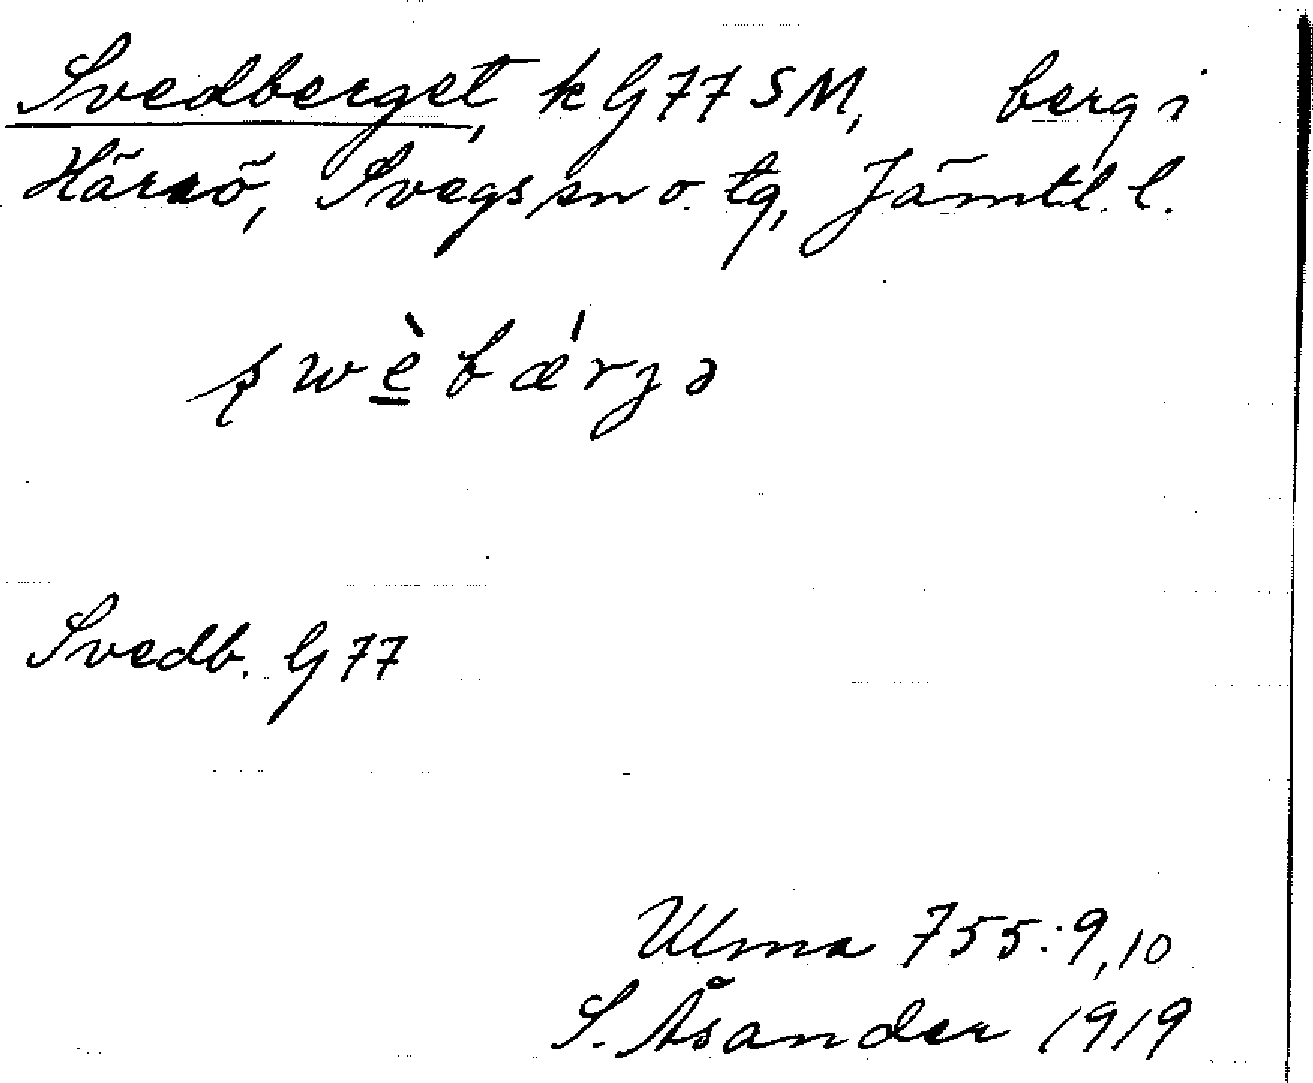 Svedberget, k G77 SM, berg i
Härsö, Svegs sn o. tg, Jämtl. l.
swèbǽrgə
Svedb. G77
Ulma 755:9,10
S. Åsander 1919